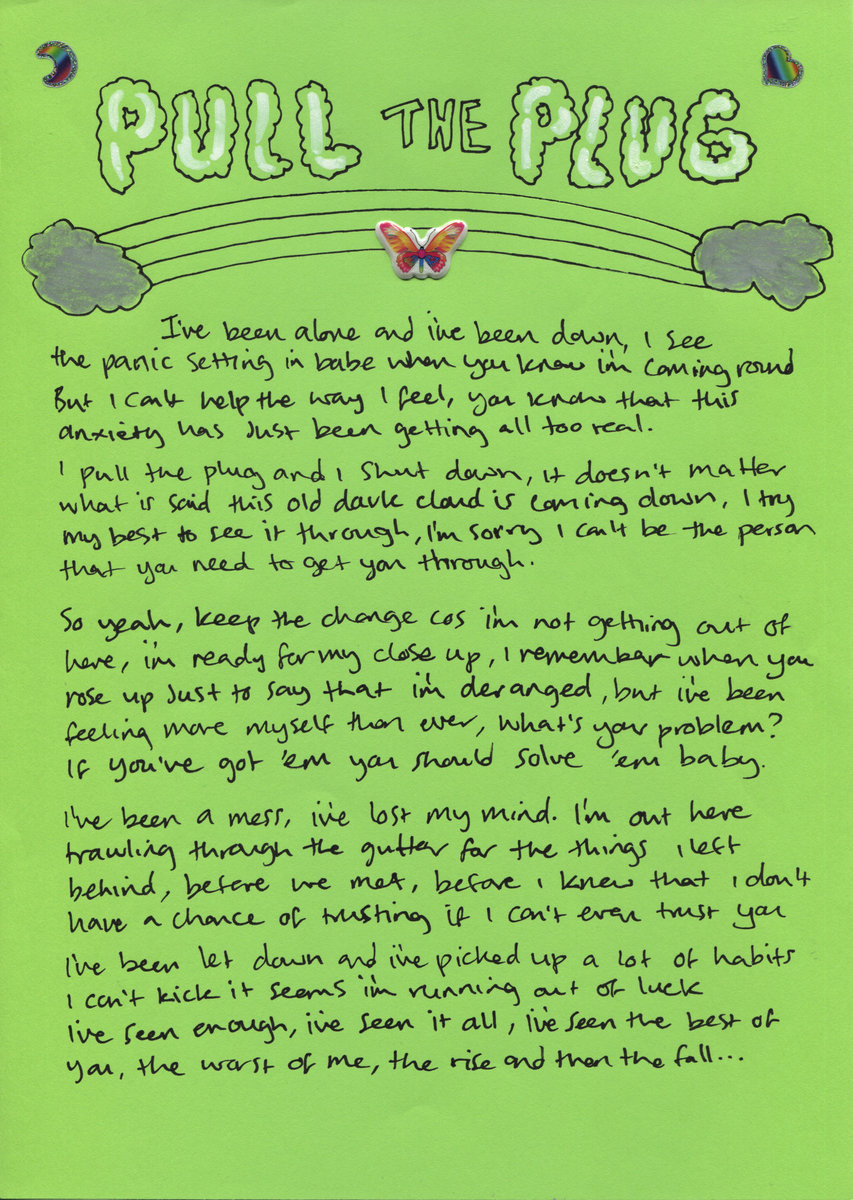 PULL THE PLUG
I've been alone and i've been down, I see
the panic setting in babe when you know i'm coming round
But I can't help the way I feel, you know that this
anxiety has just been getting all too real.
I pull the plug and I shut down, it doesn't matter
what is said this old dark cloud is coming down, I try
my best to see it through, I'm sorry I can't be the person
that you need to get you through.
So yeah, keep the change cos i'm not getting out of
here, i'm ready for my close up, I remember when you
rose up just to say that i'm deranged, but i've been
feeling more myself than ever, what's your problem?
If you've got 'em you should solve 'em baby.
I've been a mess, i've lost my mind. I'm out here
trawling through the gutter for the things I left
behind, before we met, before I knew that I don't
have a chance of trusting if I can't even trust you
I've been let down and i've picked up a lot of habits
I can't kick it seems i'm running out of luck
I've seen enough, i've seen it all, I've seen the best of
you, the worst of me, the rise and then the fall...